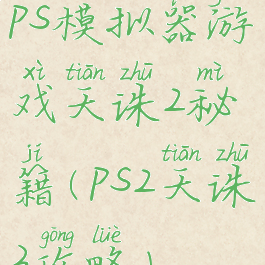 PS模拟器游
xì tiān zhū mì
戏天诛2秘
jí tiān zhū
籍(PS2天诛
gōng lüè
2攻略)